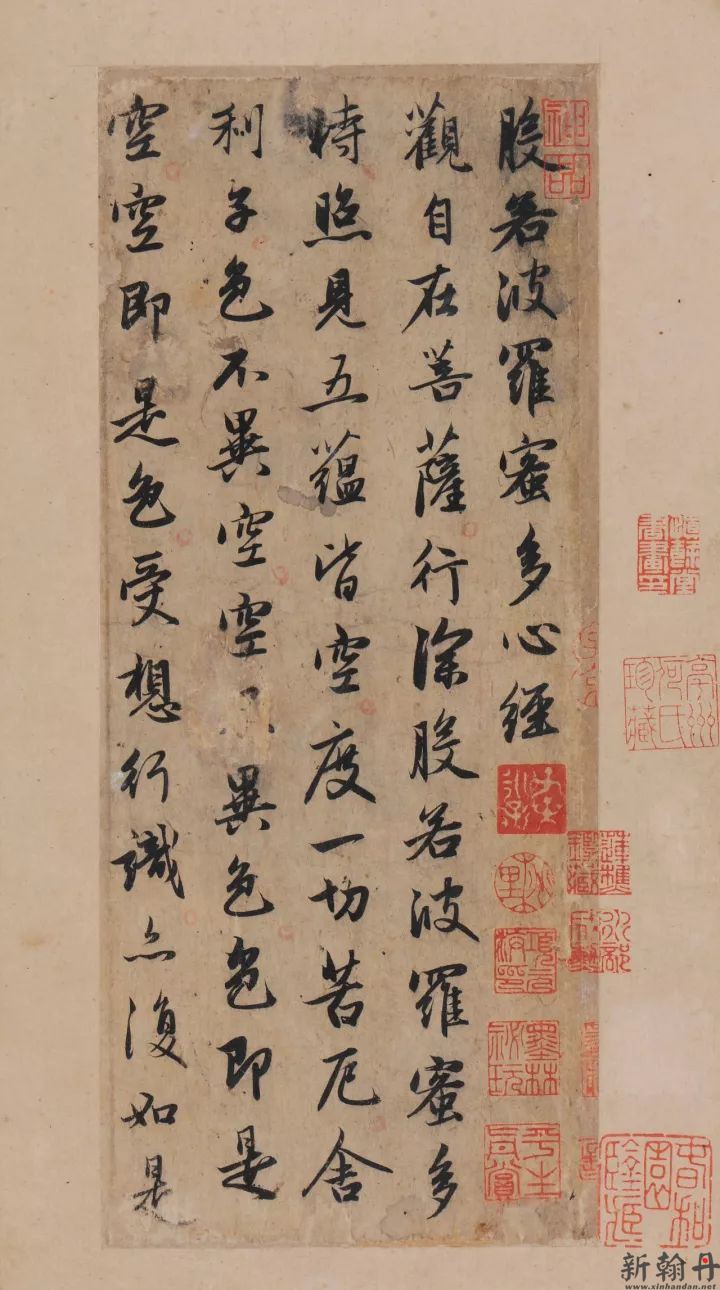 般若波羅蜜多心經
觀自在菩薩行深般若波羅蜜多
時照見五蘊皆空度一切苦厄舍
利子色不異空空不異色色即是
空空即是色受想行識亦復如是
神品
墨林秘玩
平生真賞
亭州何氏珍藏
新翰丹
www.xinhandan.net